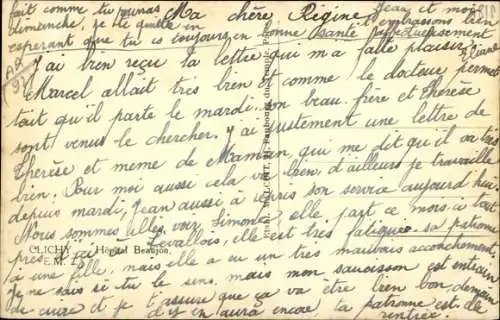 Ma chère Regine
J'ai bien reçu la lettre qui m'a faite plaisir
Marcel allait très bien et comme le docteur permet
tait qu'il parte le mardi. son beau-frère et Thérèse
sont venus le chercher. J'ai justement une lettre de
Thérèse et meme de Maman, qui me dit qu'il va très
bien. Pour moi aussi cela va bien, d'ailleurs je travaille
depuis mardi, Jean aussi à repris son service aujourd'hui
Nous sommes allés voir Simone, elle part ce mois-ci tout
près ici à Levallois, elle est très fatiguée. sa patronne
à une fille, mais elle a eu un très mauvais accouchement,
je ne sais si tu le sens, mais mon saucisson est entrain
de cuire et je t'assure que ça va être bien bon, demain
il y en aura encore, ta patronne est-elle
rentrée.
fait comme tu pourras
dimanche, je te quitte en
esperant que tu es toujours en bonne santé
Jean et moi
t'embrassons bien
affectueusement
CLICHY - Hôpital Beaujon.
E. M.